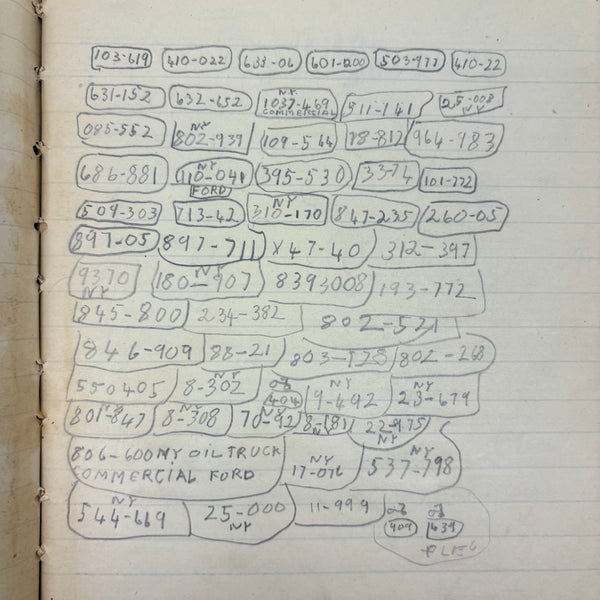 103-619 410-022 633-06 601-200 503-977 410-22
631-152 632-652 N.Y. 1037-469 COMMERCIAL 511-141 25-008 NY
085-552 NY 802-939 109-564 18-812 964-983
686-881 NY 110-041 FORD 395-530 33-74 101-772
509-303 713-42 NY 310-170 847-235 260-05
897-05 897-711 X47-40 312-397
9370 NY 180-907 NY 8393008 193-772
845-800 234-382 802-521
846-909 88-21 803-528 802-268
550405 8-302 NY 404 NY 9-492 NY 23-679
801-847 8-308 NY 70-92 NY 22-975 NY
806-600 NY OIL TRUCK
COMMERCIAL FORD NY 17-076 NY 537-798
NY 544-669 25-000 NY 11-999 409 639